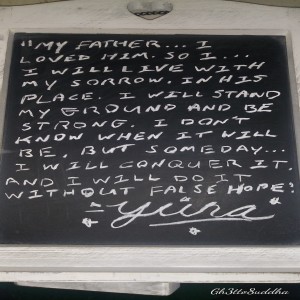 "MY FATHER... I
LOVED HIM. SO I....
I WILL LIVE WITH
MY SORROW. IN HIS
PLACE. I WILL STAND
MY GROUND AND BE
STRONG. I DON'T
KNOW WHEN IT WILL
BE. BUT SOMEDAY...
I WILL CONQUER IT.
AND I WILL DO IT
WITHOUT FALSE HOPE."
- Yuna
Gh3ttoBuddha